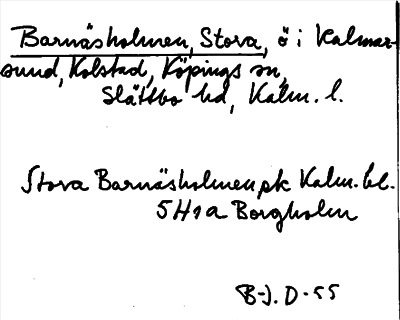 Barnäsholmen, Stora, ö i Kalmar-
sund, Kolstad, Köpings sn,
Slättbo hd, Kalm. l.
Stora Barnäsholmen pk Kalm. bl.
5H1a Borgholm
B-J. D-55